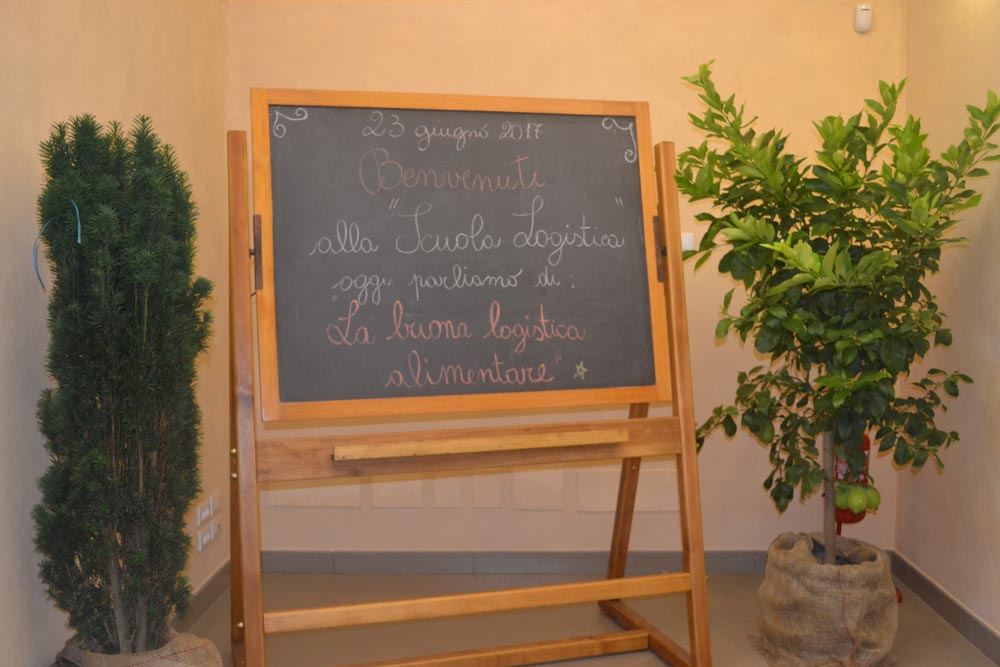 23 giugno 2017
Benvenuti
alla "Scuola Logistica"
oggi parliamo di:
"La buona logistica
alimentare"